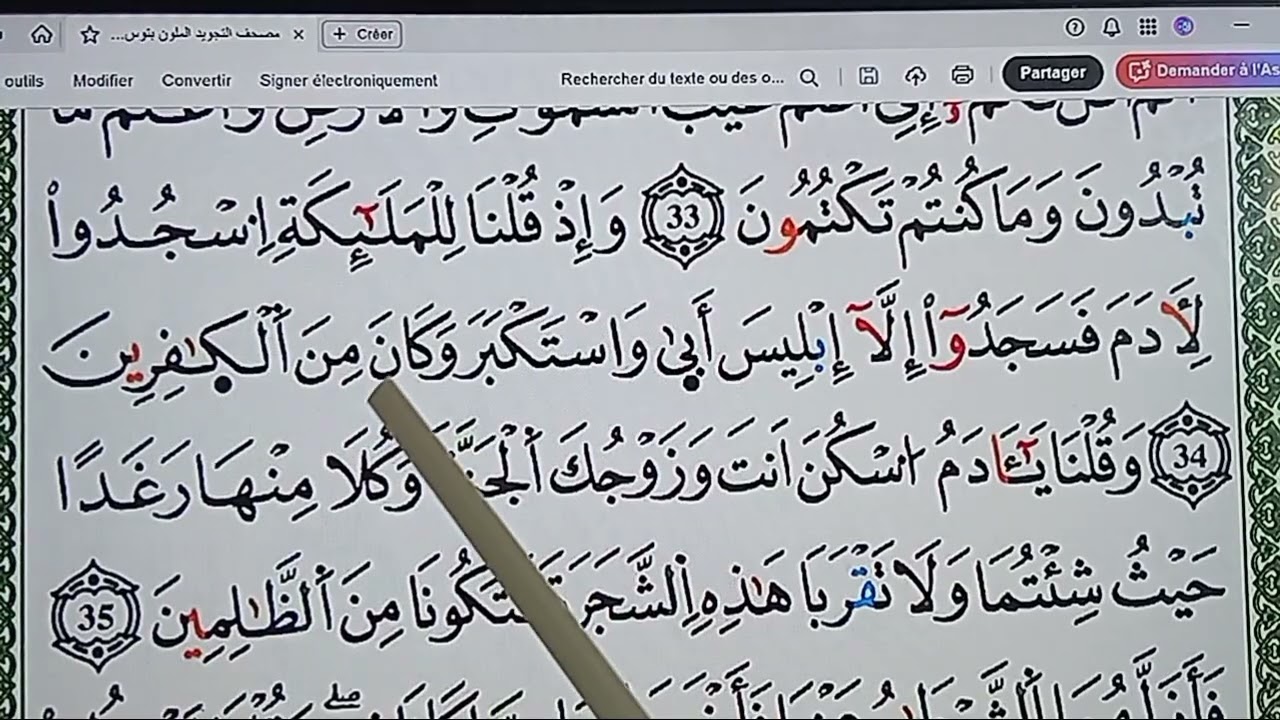 مصحف التجويد الملون بتوس... × + Créer
outils Modifier Convertir Signer électroniquement Rechercher du texte ou des o... Partager Demander à l'As
تُبْدُونَ وَمَا كُنتُمْ تَكْتُمُونَ 33 وَإِذْ قُلْنَا لِلْمَلَٰٓئِكَةِ اِ۟سْجُدُواْ
لِأٓدَمَ فَسَجَدُوٓاْ إِلَّآ إِبْلِيسَ أَبَىٰ وَاسْتَكْبَرَ وَكَانَ مِنَ اَ۬لْكٰ۪فِرِينَ
34 وَقُلْنَا يَٰٓـَٔادَمُ اُ۟سْكُنَ اَنتَ وَزَوْجُكَ اَ۬لْجَنَّةَ وَكُلَا مِنْهَا رَغَدًا
حَيْثُ شِئْتُمَا وَلَا تَقْرَبَا هَٰذِهِ اِ۬لشَّجَرَ فَتَكُونَا مِنَ اَ۬لظَّٰلِمِينَ 35